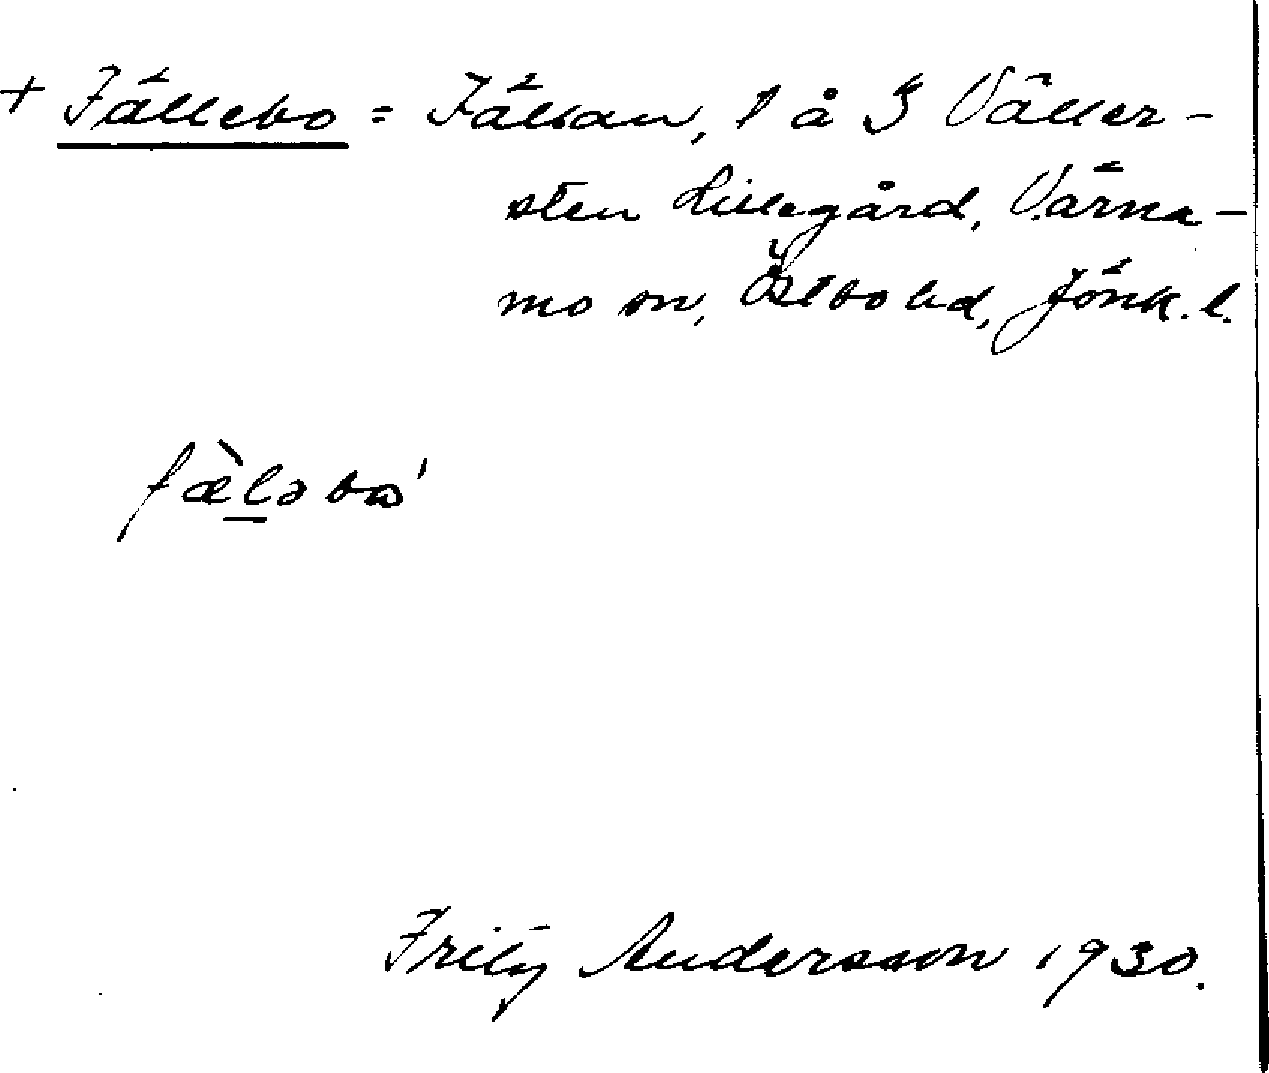 + Fällebo = Fällan, 1 å S Väller-
sten Lillegård, Värna-
mo sn, Östbo hd, Jönk. l.
fæ̀lǝbo'
Fritz Andersson 1930.